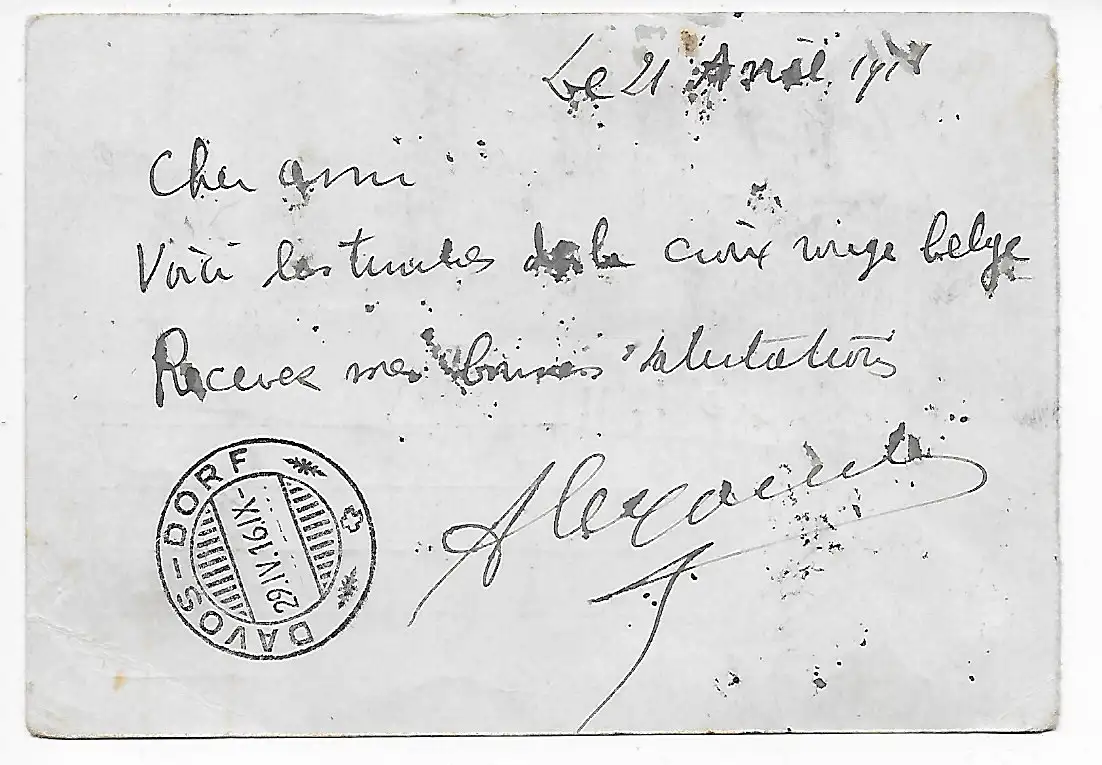 Le 21 Avril 191
Cher ami
Voici les timbres de la croix rouge belge
Recevez mes bonnes salutations
Alexandre
DAVOS-DORF
29.IV.16.IX-